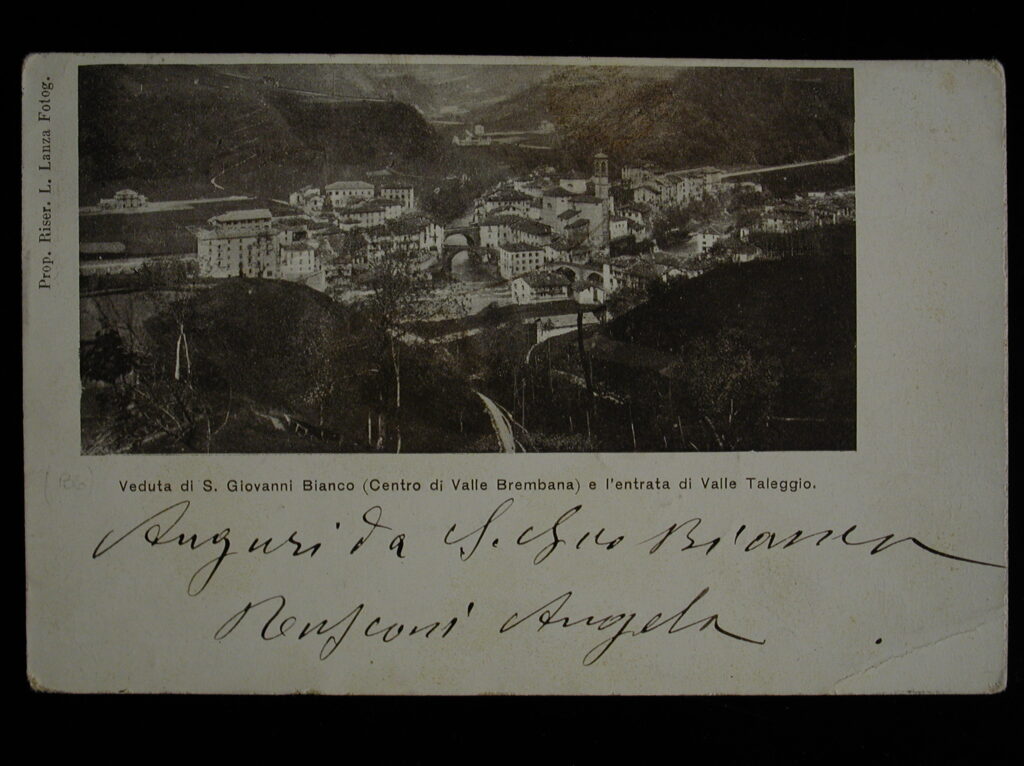 Prop. Riser. L. Lanza Fotog.
Veduta di S. Giovanni Bianco (Centro di Valle Brembana) e l'entrata di Valle Taleggio.
Auguri da S. Gio Bianco
Rusconi Angela